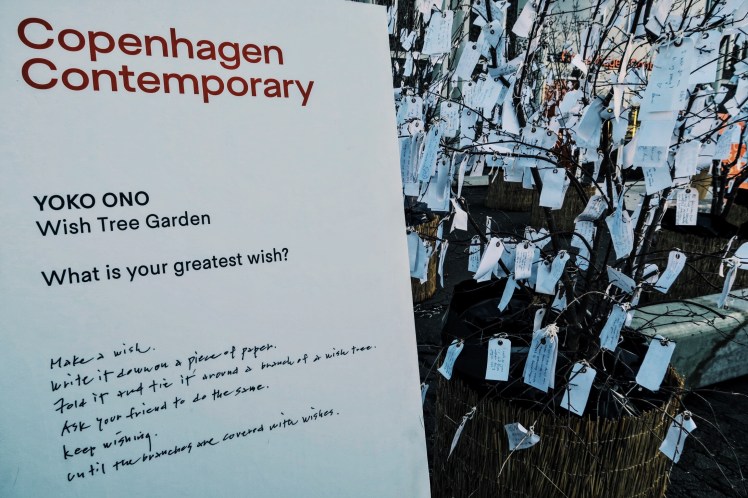 Copenhagen
Contemporary
YOKO ONO
Wish Tree Garden
What is your greatest wish?
Make a wish.
Write it down on a piece of paper.
Fold it and tie it around a branch of a wish tree.
Ask your friend to do the same.
Keep wishing.
until the branches are covered with wishes.